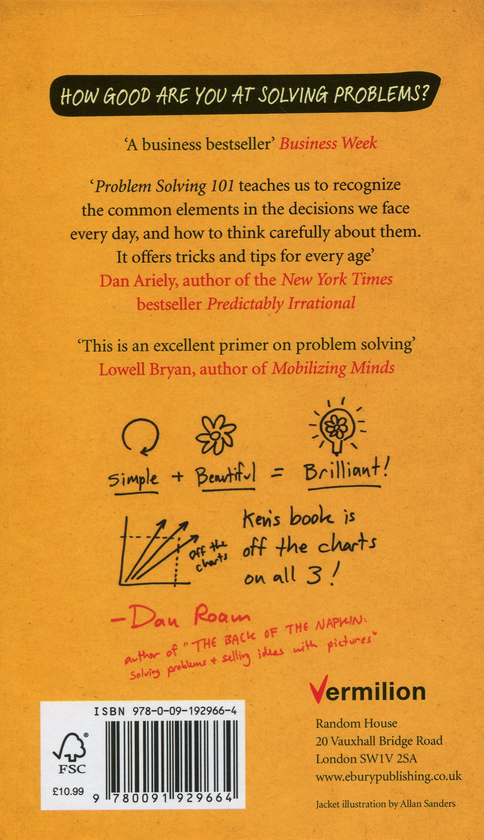 HOW GOOD ARE YOU AT SOLVING PROBLEMS?
‘A business bestseller’ Business Week
‘Problem Solving 101 teaches us to recognize
the common elements in the decisions we face
every day, and how to think carefully about them.
It offers tricks and tips for every age’
Dan Ariely, author of the New York Times
bestseller Predictably Irrational
‘This is an excellent primer on problem solving’
Lowell Bryan, author of Mobilizing Minds
Simple + Beautiful = Brilliant!
off the
charts
Ken's book is
off the charts
on all 3!
–Dan Roam
author of "THE BACK OF THE NAPKIN:
Solving problems + selling ideas with pictures"
Vermilion
Random House
20 Vauxhall Bridge Road
London SW1V 2SA
www.eburypublishing.co.uk
Jacket illustration by Allan Sanders
ISBN 978-0-09-192966-4
FSC
£10.99
9 780091 929664